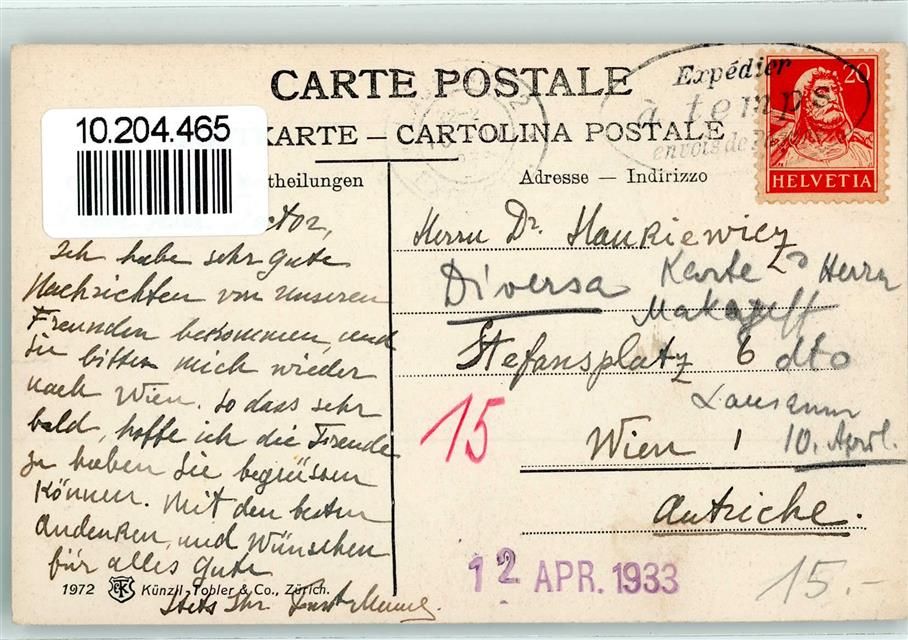 CARTE POSTALE
KARTE – CARTOLINA POSTALE
10.204.465
theilungen
Adresse — Indirizzo
Expédier
à temps
envois de
20
HELVETIA
Ich habe sehr gute
Nachrichten von unseren
Freunden bekommen, und
sie bitten mich wieder
nach Wien. So dass sehr
bald, hoffe ich die Freude
zu haben Sie begrüssen
können. Mit den besten
Andenken, und Wünschen
für alles Gute
Stets Ihr
Herrn Dr. Hankiewicz
Diversa
Karte v Herrn
Stefansplatz 6
dto
Lausanne
10. April.
Wien 1
Autriche.
15
12 APR. 1933
15.-
1972 Künzli-Tobler & Co., Zürich.